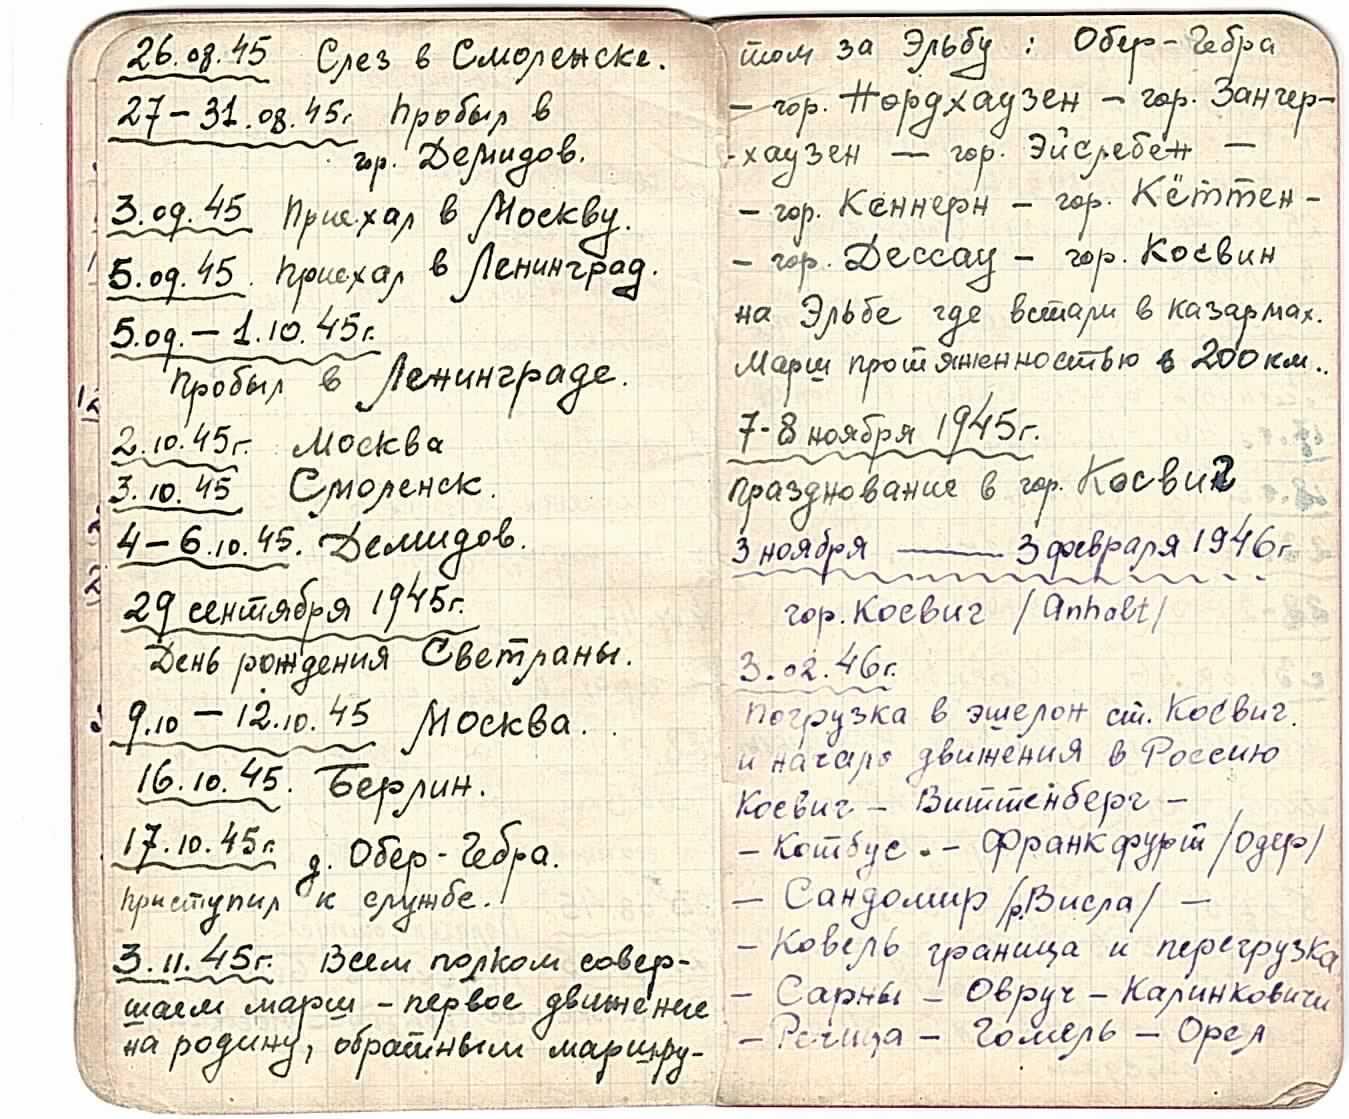 26.08.45 Слез в Смоленске.
27-31.08.45г. Пробыл в
гор. Демидов.
3.09.45 Приехал в Москву.
5.09.45 Приехал в Ленинград.
5.09. - 1.10.45г.
Пробыл в Ленинграде.
2.10.45г. Москва
3.10.45 Смоленск.
4-6.10.45. Демидов.
29 сентября 1945г.
День рождения Светланы.
9.10 - 12.10.45 Москва.
16.10.45. Берлин.
17.10.45г. д. Обер-Гебра.
Приступил к службе.
3.11.45г. Всем полком совер-
шаем марш - первое движение
на родину, обратным маршру-
том за Эльбу: Обер-Гебра
- гор. Нордхаузен - гор. Зангер-
-хаузен - гор. Эйслебен -
- гор. Кеннерн - гор. Кёттен -
- гор. Дессау - гор. Косвин
на Эльбе где встали в казармах.
Марш протяженностью в 200 км..
7-8 ноября 1945г.
Празднование в гор. Косвиг
3 ноября — 3 февраля 1946г.
гор. Косвиг /Anhalt/
3.02.46г.
Погрузка в эшелон ст. Косвиг.
и начало движения в Россию
Косвиг - Виттенберг -
- Котбус. - Франкфурт /Одер/
- Сандомир /р.Висла/ -
- Ковель граница и перегрузка
- Сарны - Овруч - Калинковичи
- Речица - Гомель - Орел